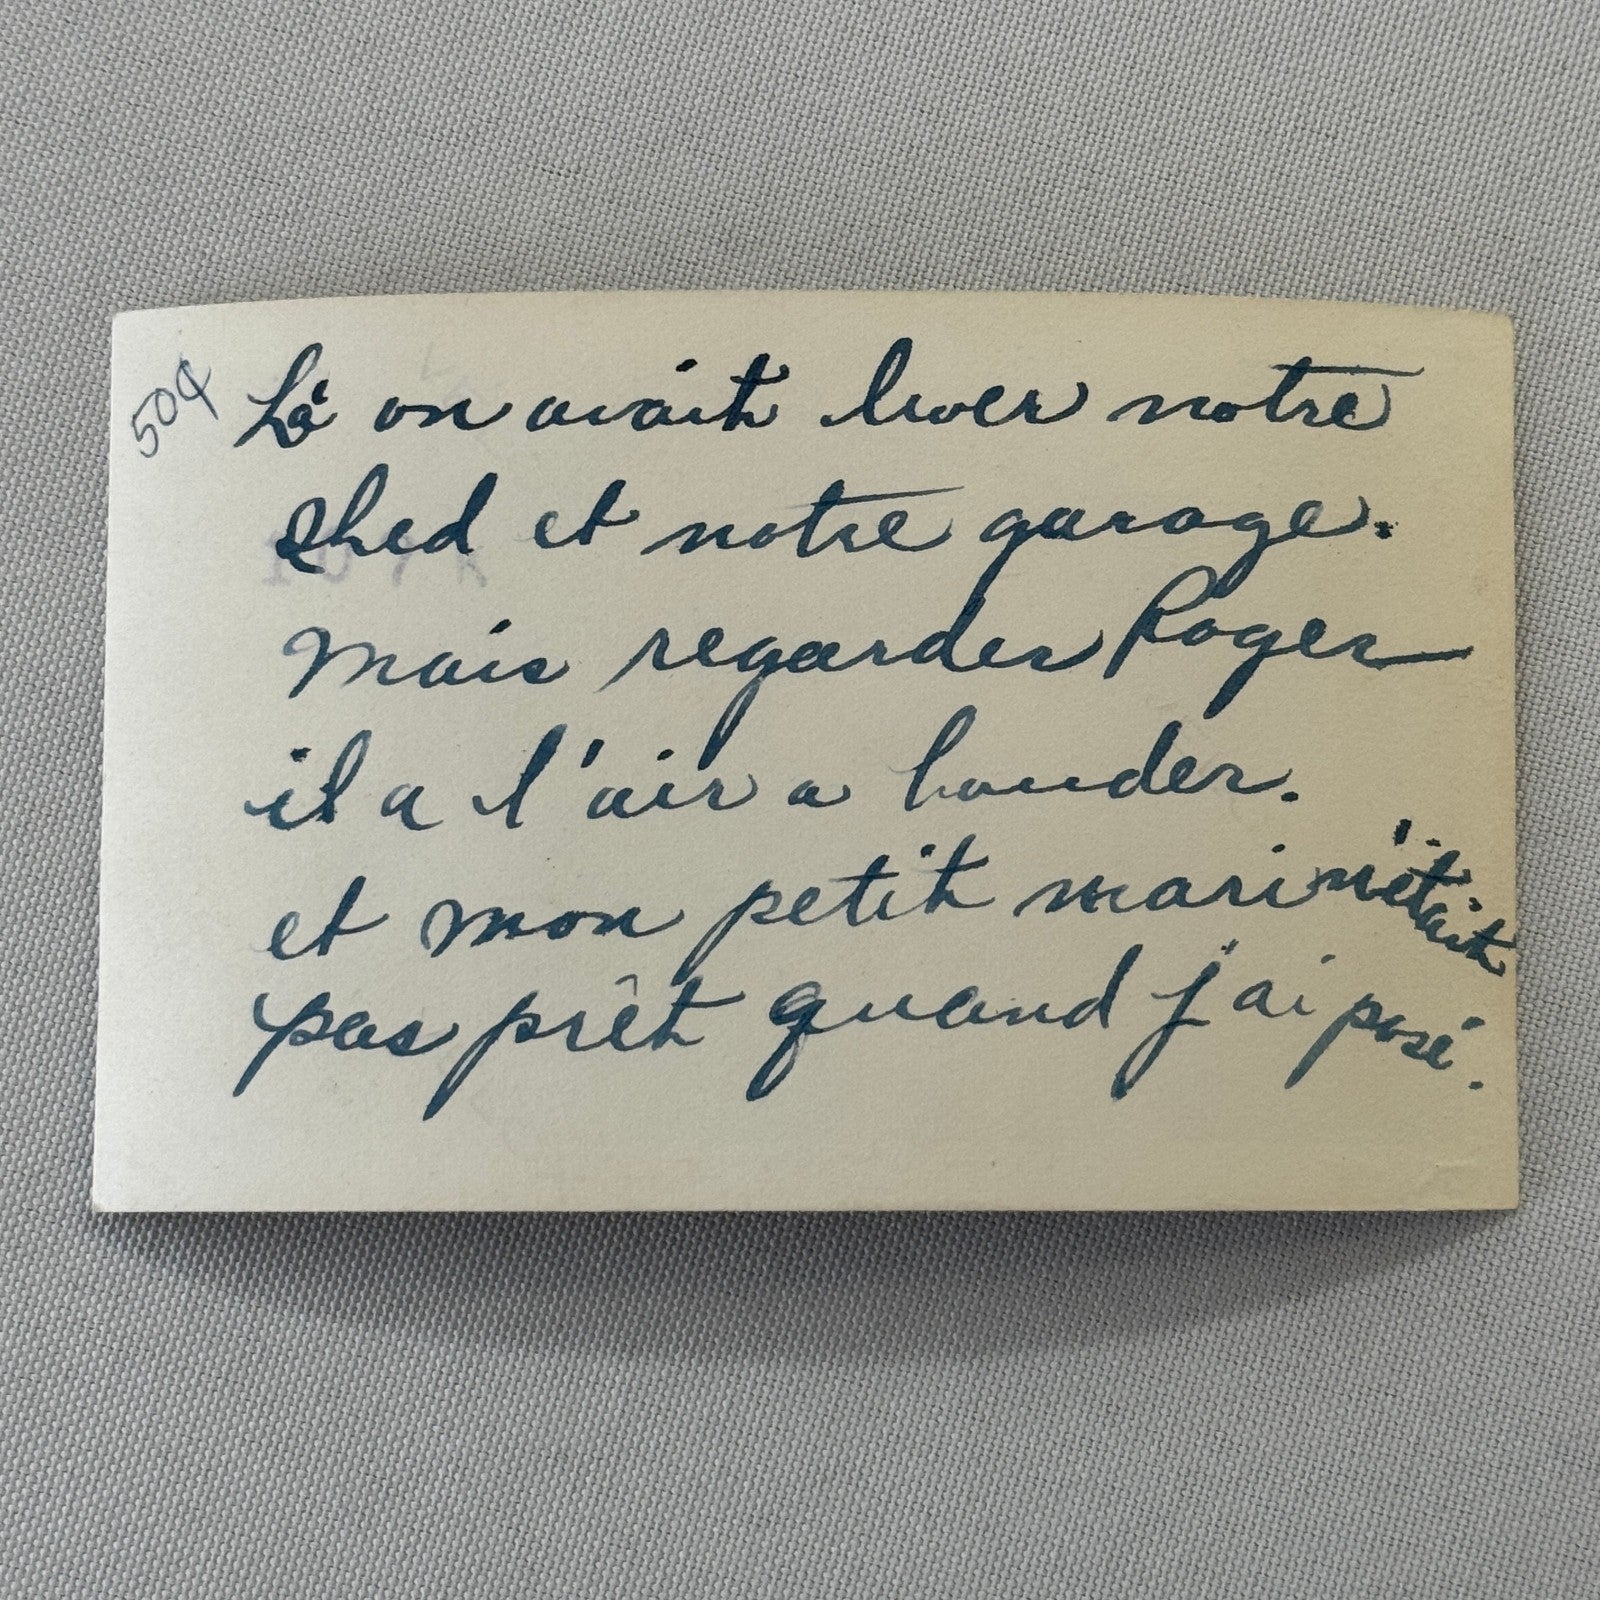 50¢ Là on avait lever notre
shed et notre garage.
Mais regarder Roger
il a l'air a bouder.
et mon petit mari n'était
pas prêt quand j'ai posé.